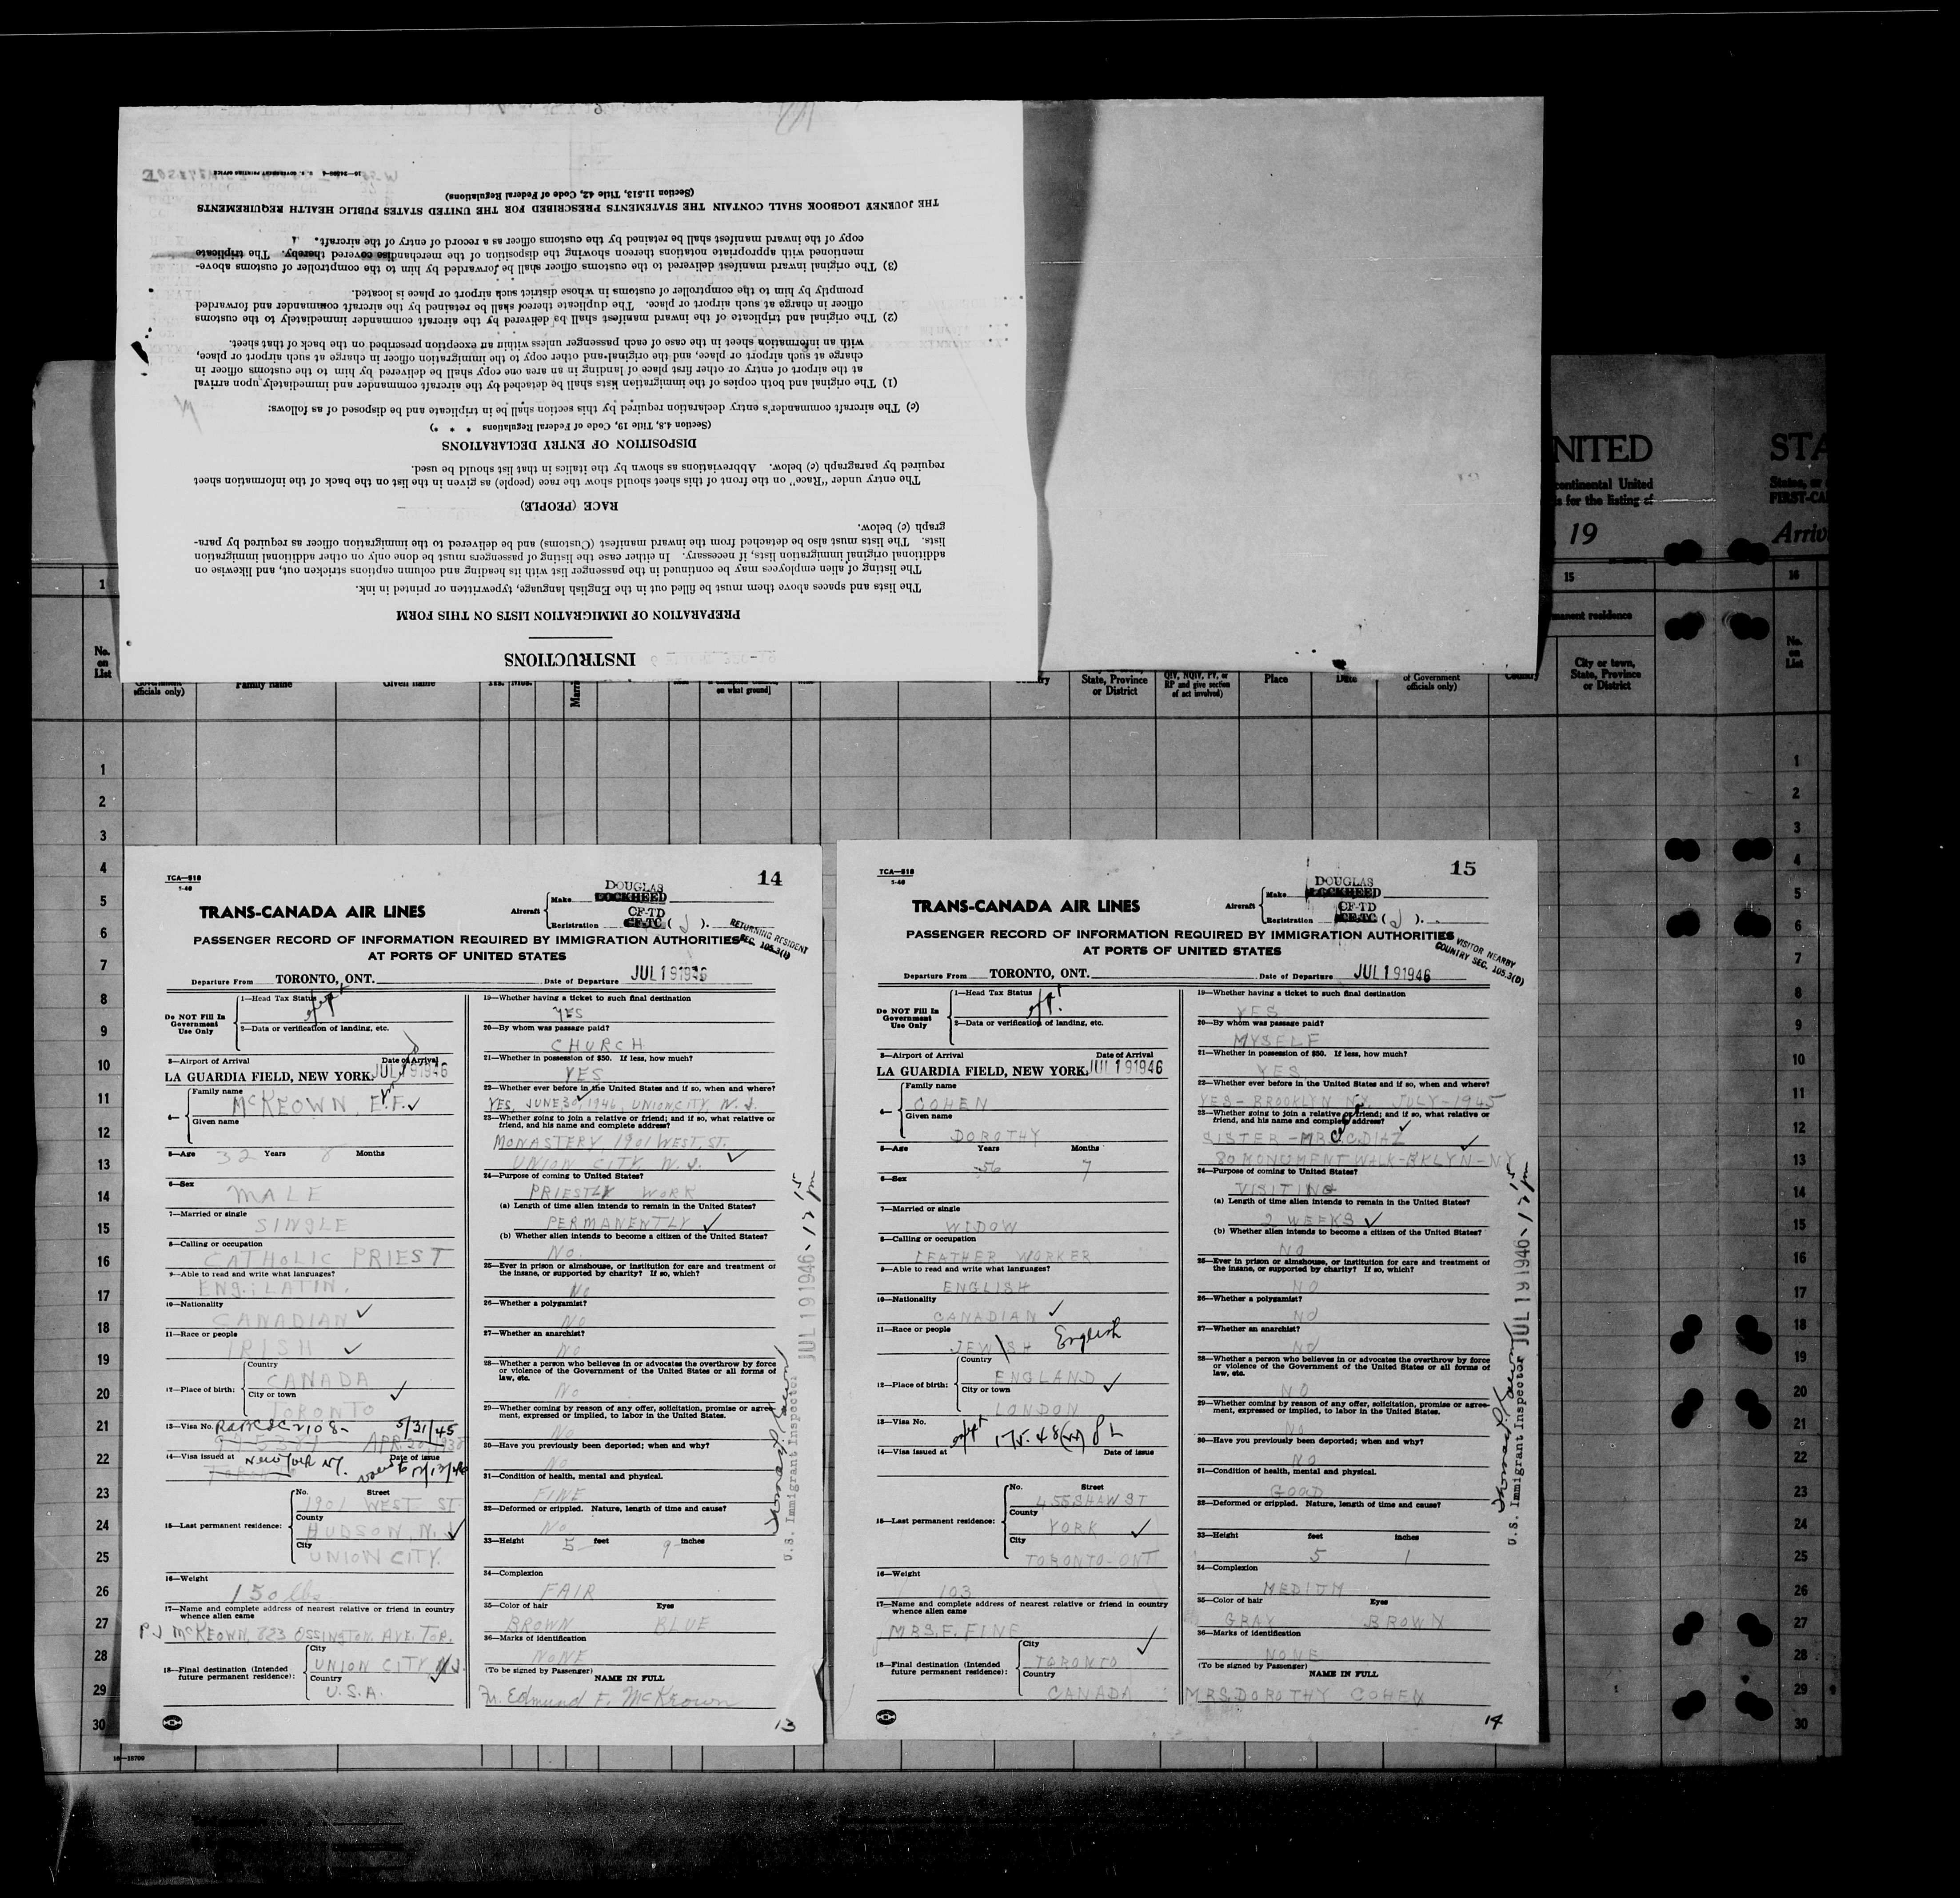 INSTRUCTIONS
PREPARATION OF IMMIGRATION LISTS ON THIS FORM
The lists and spaces above them must be filled out in the English language, typewritten or printed in ink.
The listing of alien employees may be continued in the passenger list with its heading and column captions stricken out, and likewise on
additional original immigration lists, if necessary. In either case the listing of passengers must be done only on other additional immigration
lists. The lists must also be detached from the inward manifest (Customs) and be delivered to the immigration officer as required by para-
graph (c) below.
RACE (PEOPLE)
The entry under "Race" on the front of this sheet should show the race (people) as given in the list on the back of the information sheet
required by paragraph (c) below. Abbreviations as shown by the italics in that list should be used.
DISPOSITION OF ENTRY DECLARATIONS
(Section 4.8, Title 19, Code of Federal Regulations * * *)
(c) The aircraft commander's entry declaration required by this section shall be in triplicate and be disposed of as follows:
(1) The original and both copies of the immigration lists shall be detached by the aircraft commander and immediately upon arrival
at the airport of entry or other first place of landing in an area one copy shall be delivered by him to the customs officer in
charge at such airport or place, and the original and other copy to the immigration officer in charge at such airport or place,
with an information sheet in the case of each passenger unless within an exception prescribed on the back of that sheet.
(2) The original and triplicate of the inward manifest shall be delivered by the aircraft commander immediately to the customs
officer in charge at such airport or place. The duplicate thereof shall be retained by the aircraft commander and forwarded
promptly by him to the comptroller of customs in whose district such airport or place is located.
(3) The original inward manifest delivered to the customs officer shall be forwarded by him to the comptroller of customs above-
mentioned with appropriate notations thereon showing the disposition of the merchandise covered thereby. The triplicate
copy of the inward manifest shall be retained by the customs officer as a record of entry of the aircraft.
THE JOURNEY LOGBOOK SHALL CONTAIN THE STATEMENTS PRESCRIBED FOR THE UNITED STATES PUBLIC HEALTH REQUIREMENTS
(Section 11.513, Title 42, Code of Federal Regulations)
U. S. GOVERNMENT PRINTING OFFICE
NITED
continental United
is for the listing of
19
STA
States, or
FIRST-CA
Arriv
1
15
16
manent residence
No. on List
officials only)
Family name
Given name
on what ground]
State, Province or District
QIV, NQIV, PV, or RP and give section of act involved)
Place
Date
of Government officials only)
Country
City or town, State, Province or District
No. on List
1
2
3
4
5
6
7
8
9
10
11
12
13
14
15
16
17
18
19
20
21
22
23
24
25
26
27
28
29
30
16—18709
TCA—518
1-46
14
TRANS-CANADA AIR LINES
Aircraft
Make DOUGLAS LOCKHEED
Registration CF-TD CF-TC ( J ).
RETURNING RESIDENT
SEC. 105.3(1)
PASSENGER RECORD OF INFORMATION REQUIRED BY IMMIGRATION AUTHORITIES
AT PORTS OF UNITED STATES
Departure From TORONTO, ONT. Date of Departure JUL 19 1946
Do NOT Fill In Government Use Only
1—Head Tax Status
2—Data or verification of landing, etc.
3—Airport of Arrival Date of Arrival
LA GUARDIA FIELD, NEW YORK. JUL 19 1946
4— Family name McKEOWN, E.F.
Given name
5—Age 32 Years 8 Months
6—Sex MALE
7—Married or single SINGLE
8—Calling or occupation CATHOLIC PRIEST
9—Able to read and write what languages? ENG; LATIN.
10—Nationality CANADIAN
11—Race or people IRISH
12—Place of birth: Country CANADA
City or town TORONTO
13—Visa No. 2108- 5/31/45
APR. 20, 1938
14—Visa issued at New York NY. Date of issue
15—Last permanent residence: No. Street 1901 WEST ST.
County HUDSON, N.J.
City UNION CITY.
16—Weight 150 lbs
17—Name and complete address of nearest relative or friend in country
whence alien came
P.J McKEOWN, 823 OSSINGTON AVE. TOR.
18—Final destination (Intended future permanent residence): City UNION CITY N.J.
Country U.S.A.
19—Whether having a ticket to such final destination
YES
20—By whom was passage paid?
CHURCH
21—Whether in possession of $50. If less, how much?
YES
22—Whether ever before in the United States and if so, when and where?
YES, JUNE 30, 1946, UNION CITY, N.J.
23—Whether going to join a relative or friend; and if so, what relative or
friend, and his name and complete address?
MONASTERY, 1901 WEST, ST.
UNION CITY, N.J.
24—Purpose of coming to United States?
PRIESTLY WORK
(a) Length of time alien intends to remain in the United States?
PERMANENTLY
(b) Whether alien intends to become a citizen of the United States?
NO.
25—Ever in prison or almshouse, or institution for care and treatment of
the insane, or supported by charity? If so, which?
NO
26—Whether a polygamist?
NO
27—Whether an anarchist?
NO
28—Whether a person who believes in or advocates the overthrow by force
or violence of the Government of the United States or all forms of
law, etc.
NO
29—Whether coming by reason of any offer, solicitation, promise or agree-
ment, expressed or implied, to labor in the United States.
NO
30—Have you previously been deported; when and why?
NO
31—Condition of health, mental and physical.
FINE
32—Deformed or crippled. Nature, length of time and cause?
NO
33—Height 5 feet 9 inches
34—Complexion
FAIR
35—Color of hair Eyes
BROWN BLUE
36—Marks of identification
NONE
(To be signed by Passenger) NAME IN FULL
Fr. Edmund F. McKeown
13
JUL 19 1946
U.S. Immigrant Inspector
TCA—518
1-46
15
TRANS-CANADA AIR LINES
Aircraft
Make DOUGLAS LOCKHEED
Registration CF-TD CF-TC ( J ).
VISITOR NEARBY
COUNTRY SEC. 105.3(D)
PASSENGER RECORD OF INFORMATION REQUIRED BY IMMIGRATION AUTHORITIES
AT PORTS OF UNITED STATES
Departure From TORONTO, ONT. Date of Departure JUL 19 1946
Do NOT Fill In Government Use Only
1—Head Tax Status
2—Data or verification of landing, etc.
3—Airport of Arrival Date of Arrival
LA GUARDIA FIELD, NEW YORK. JUL 19 1946
4— Family name COHEN
Given name DOROTHY
5—Age Years 56 Months 7
6—Sex
7—Married or single WIDOW
8—Calling or occupation LEATHER WORKER
9—Able to read and write what languages? ENGLISH
10—Nationality CANADIAN
11—Race or people JEWISH English
12—Place of birth: Country ENGLAND
City or town LONDON
13—Visa No.
14—Visa issued at Date of issue
15—Last permanent residence: No. Street 455 SHAW ST
County YORK
City TORONTO-ONT
16—Weight 103
17—Name and complete address of nearest relative or friend in country
whence alien came
MRS. F. FINE
18—Final destination (Intended future permanent residence): City TORONTO
Country CANADA
19—Whether having a ticket to such final destination
YES
20—By whom was passage paid?
MYSELF
21—Whether in possession of $50. If less, how much?
YES
22—Whether ever before in the United States and if so, when and where?
YES - BROOKLYN NY. JULY-1945
23—Whether going to join a relative or friend; and if so, what relative or
friend, and his name and complete address?
SISTER - MRS. C. DIAZ
80 MONUMENT WALK-BKLYN-NY
24—Purpose of coming to United States?
VISITING
(a) Length of time alien intends to remain in the United States?
2 WEEKS
(b) Whether alien intends to become a citizen of the United States?
NO
25—Ever in prison or almshouse, or institution for care and treatment of
the insane, or supported by charity? If so, which?
NO
26—Whether a polygamist?
NO
27—Whether an anarchist?
NO
28—Whether a person who believes in or advocates the overthrow by force
or violence of the Government of the United States or all forms of
law, etc.
NO
29—Whether coming by reason of any offer, solicitation, promise or agree-
ment, expressed or implied, to labor in the United States.
NO
30—Have you previously been deported; when and why?
NO
31—Condition of health, mental and physical.
GOOD
32—Deformed or crippled. Nature, length of time and cause?
33—Height feet inches
5 1
34—Complexion
MEDIUM
35—Color of hair Eyes
GRAY BROWN
36—Marks of identification
NONE
(To be signed by Passenger) NAME IN FULL
MRS DOROTHY COHEN
14
JUL 19 1946
U.S. Immigrant Inspector